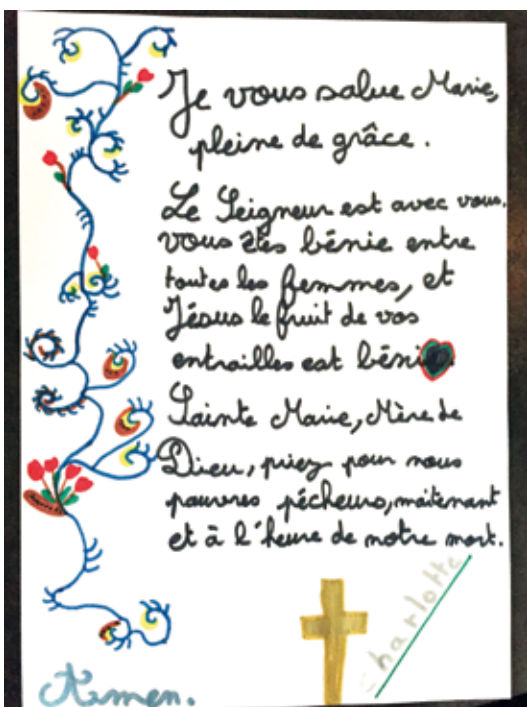 Je vous salue Marie,
pleine de grâce.
Le Seigneur est avec vous.
vous êtes bénie entre
toutes les femmes, et
Jésus le fruit de vos
entrailles est béni.
Sainte Marie, Mère de
Dieu, priez pour nous
pauvres pécheurs, maitenant
et à l'heure de notre mort.
charlotte
Amen.